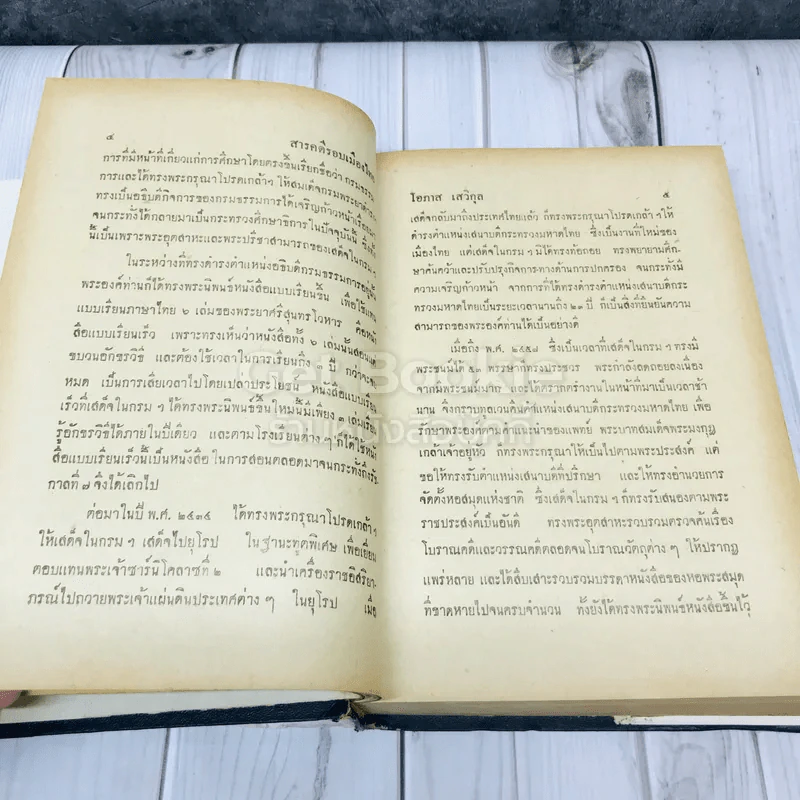 ๔
สารคดีรอบเมืองไทย
การที่มีหน้าที่เกี่ยวแก่การศึกษาโดยตรงขึ้นเรียกชื่อว่า กรมธรรม
การและได้ทรงพระกรุณาโปรดเกล้าฯ ให้สมเด็จกรมพระยาดำรงฯ
ทรงเป็นอธิบดีกิจการของกรมธรรมการได้เจริญก้าวหน้าเรื่อยมา
จนกระทั่งได้กลายมาเป็นกระทรวงศึกษาธิการในปัจจุบันนี้ ซึ่งทั้ง
นี้เป็นเพราะพระอุตสาหะและพระปรีชาสามารถของเสด็จในกรมฯ
ในระหว่างที่ทรงดำรงตำแหน่งอธิบดีกรมธรรมการอยู่นั้น
พระองค์ท่านก็ได้ทรงพระนิพนธ์หนังสือแบบเรียนขึ้น เพื่อใช้แทน
แบบเรียนภาษาไทย ๖ เล่มของพระยาศรีสุนทรโวหาร คือหนัง
สือแบบเรียนเร็ว เพราะทรงเห็นว่าหนังสือทั้ง ๖ เล่มนั้นสอนแต่
ขบวนอักขรวิธี และต้องใช้เวลาในการเรียนถึง ปี กว่าจะจบ
หมด เป็นการเสียเวลาไปโดยเปล่าประโยชน์ หนังสือแบบเรียน
เร็วที่เสด็จในกรม ฯ ได้ทรงพระนิพนธ์ขึ้นใหม่นั้นมีเพียง ๓ เล่มเรียน
รู้อักขรวิธีได้ภายในปีเดียว และตามโรงเรียนต่าง ๆ ก็ได้ใช้หนัง
สือแบบเรียนเร็วนี้เป็นหนังสือ ในการสอนตลอดมาจนกระทั่งถึงรัช
กาลที่ ๗ จึงได้เลิกไป
ต่อมาในปี พ.ศ. ๒๔๓๔ ได้ทรงพระกรุณาโปรดเกล้าฯ
ให้เสด็จในกรม ฯ เสด็จไปยุโรป ในฐานะทูตพิเศษ เพื่อเยี่ยม
ตอบแทนพระเจ้าซาร์นิโคลาซที่ ๒ และนำเครื่องราชอิสริยา-
ภรณ์ไปถวายพระเจ้าแผ่นดินประเทศต่าง ๆ ในยุโรป เมื่อ
โอภาส เสวิกุล ๕
เสด็จกลับมาถึงประเทศไทยแล้ว ก็ทรงพระกรุณาโปรดเกล้า ฯ ให้
ดำรงตำแหน่งเสนาบดีกระทรวงมหาดไทย ซึ่งเป็นงานที่ใหม่ของ
เมืองไทย แต่เสด็จในกรม ฯ มิได้ทรงท้อถอย ทรงพยายามศึก-
ษาค้นคว้าและปรับปรุงกิจการทางด้านการปกครอง จนกระทั่งมี
ความเจริญก้าวหน้า จากการที่ได้ทรงดำรงตำแหน่งเสนาบดีกระ
ทรวงมหาดไทยเป็นระยะเวลานานถึง ๒๓ ปี ก็เป็นสิ่งที่ยืนยันความ
สามารถของพระองค์ท่านได้เป็นอย่างดี
เมื่อถึง พ.ศ. ๒๔๕๘ ซึ่งเป็นเวลาที่เสด็จในกรม ฯ ทรงมี
พระชนม์ได้ ๕๓ พรรษาก็ทรงประชวร พระกำลังถดถอยลงเนื่อง
จากมีพระชนม์มาก และได้ตรากตรำงานในหน้าที่มาเป็นเวลาช้า
นาน จึงกราบทูลเวนคืนตำแหน่งเสนาบดีกระทรวงมหาดไทย เพื่อ
รักษาพระองค์ตามคำแนะนำของแพทย์ พระบาทสมเด็จพระมงกุฎ
เกล้าเจ้าอยู่หัว ก็ทรงพระกรุณาให้เป็นไปตามพระประสงค์ แต่
ขอให้ทรงรับตำแหน่งเสนาบดีที่ปรึกษา และให้ทรงอำนวยการ
จัดตั้งหอสมุดแห่งชาติ ซึ่งเสด็จในกรม ฯ ก็ทรงรับสนองตามพระ
ราชประสงค์เป็นอันดี ทรงพระอุตสาหะรวบรวมตรวจค้นเรื่อง
โบราณคดีและวรรณคดีตลอดจนโบราณวัตถุต่าง ๆ ให้ปรากฏ
แพร่หลาย และได้สืบเสาะรวบรวมบรรดาหนังสือของหอพระสมุด
ที่ขาดหายไปจนครบจำนวน ทั้งยังได้ทรงพระนิพนธ์หนังสือขึ้นไว้